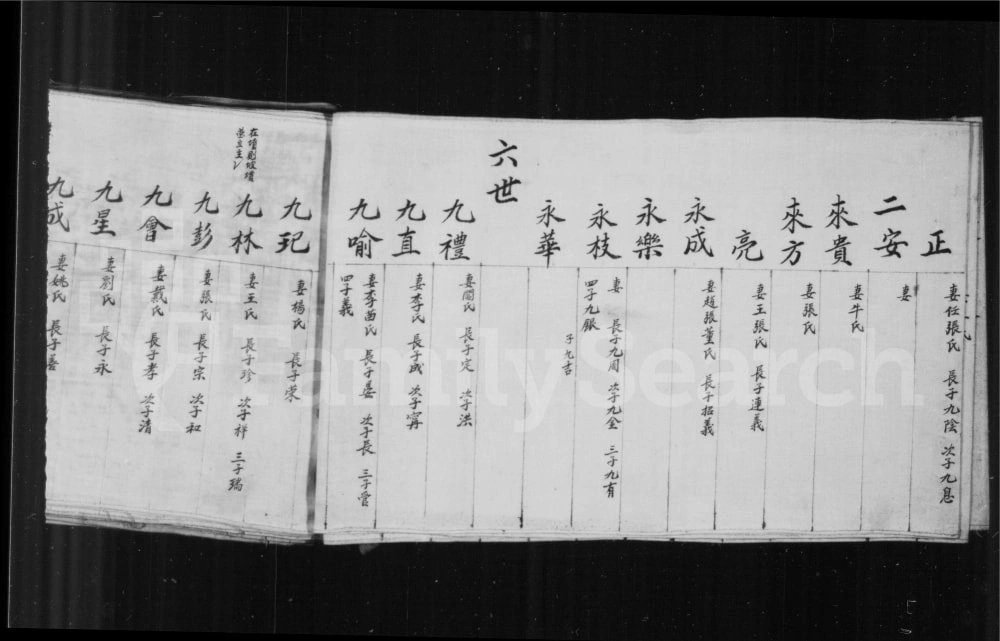 正
妻任張氏 長子九陰 次子九息
二安
妻
來貴
妻牛氏
來方
妻張氏
亮
妻王張氏 長子連義
永成
妻趙張董氏 長子招義
永樂
永枝
妻 長子九周 次子九全 三子九有
四子九銀
子九吉
永華
六世
九禮
妻閻氏 長子定 次子洪
九直
妻李氏 長子成 次子寗
九喻
妻李苗氏 長子晏 次子長 三子管
四子義
九玘
妻楊氏 長子榮
在墳
墳
九林
妻王氏 長子珍 次子祥 三子瑞
九彭
妻張氏 長子宗 次子和
九會
妻戴氏 長子孝 次子清
九星
妻劉氏 長子永
九成
妻姚氏 長子善
FamilySearch